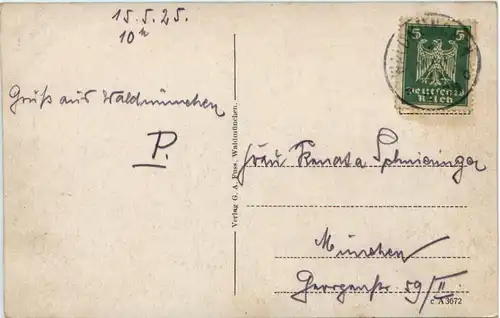 15.5.25.
10h
Gruß aus Waldmünchen
P.
Verlag G. A. Fuss, Waldmünchen.
5 5
Deutsches
Reich
Fräu Renata Schnieringer
München
Georgenstr 59/II
c A 3672